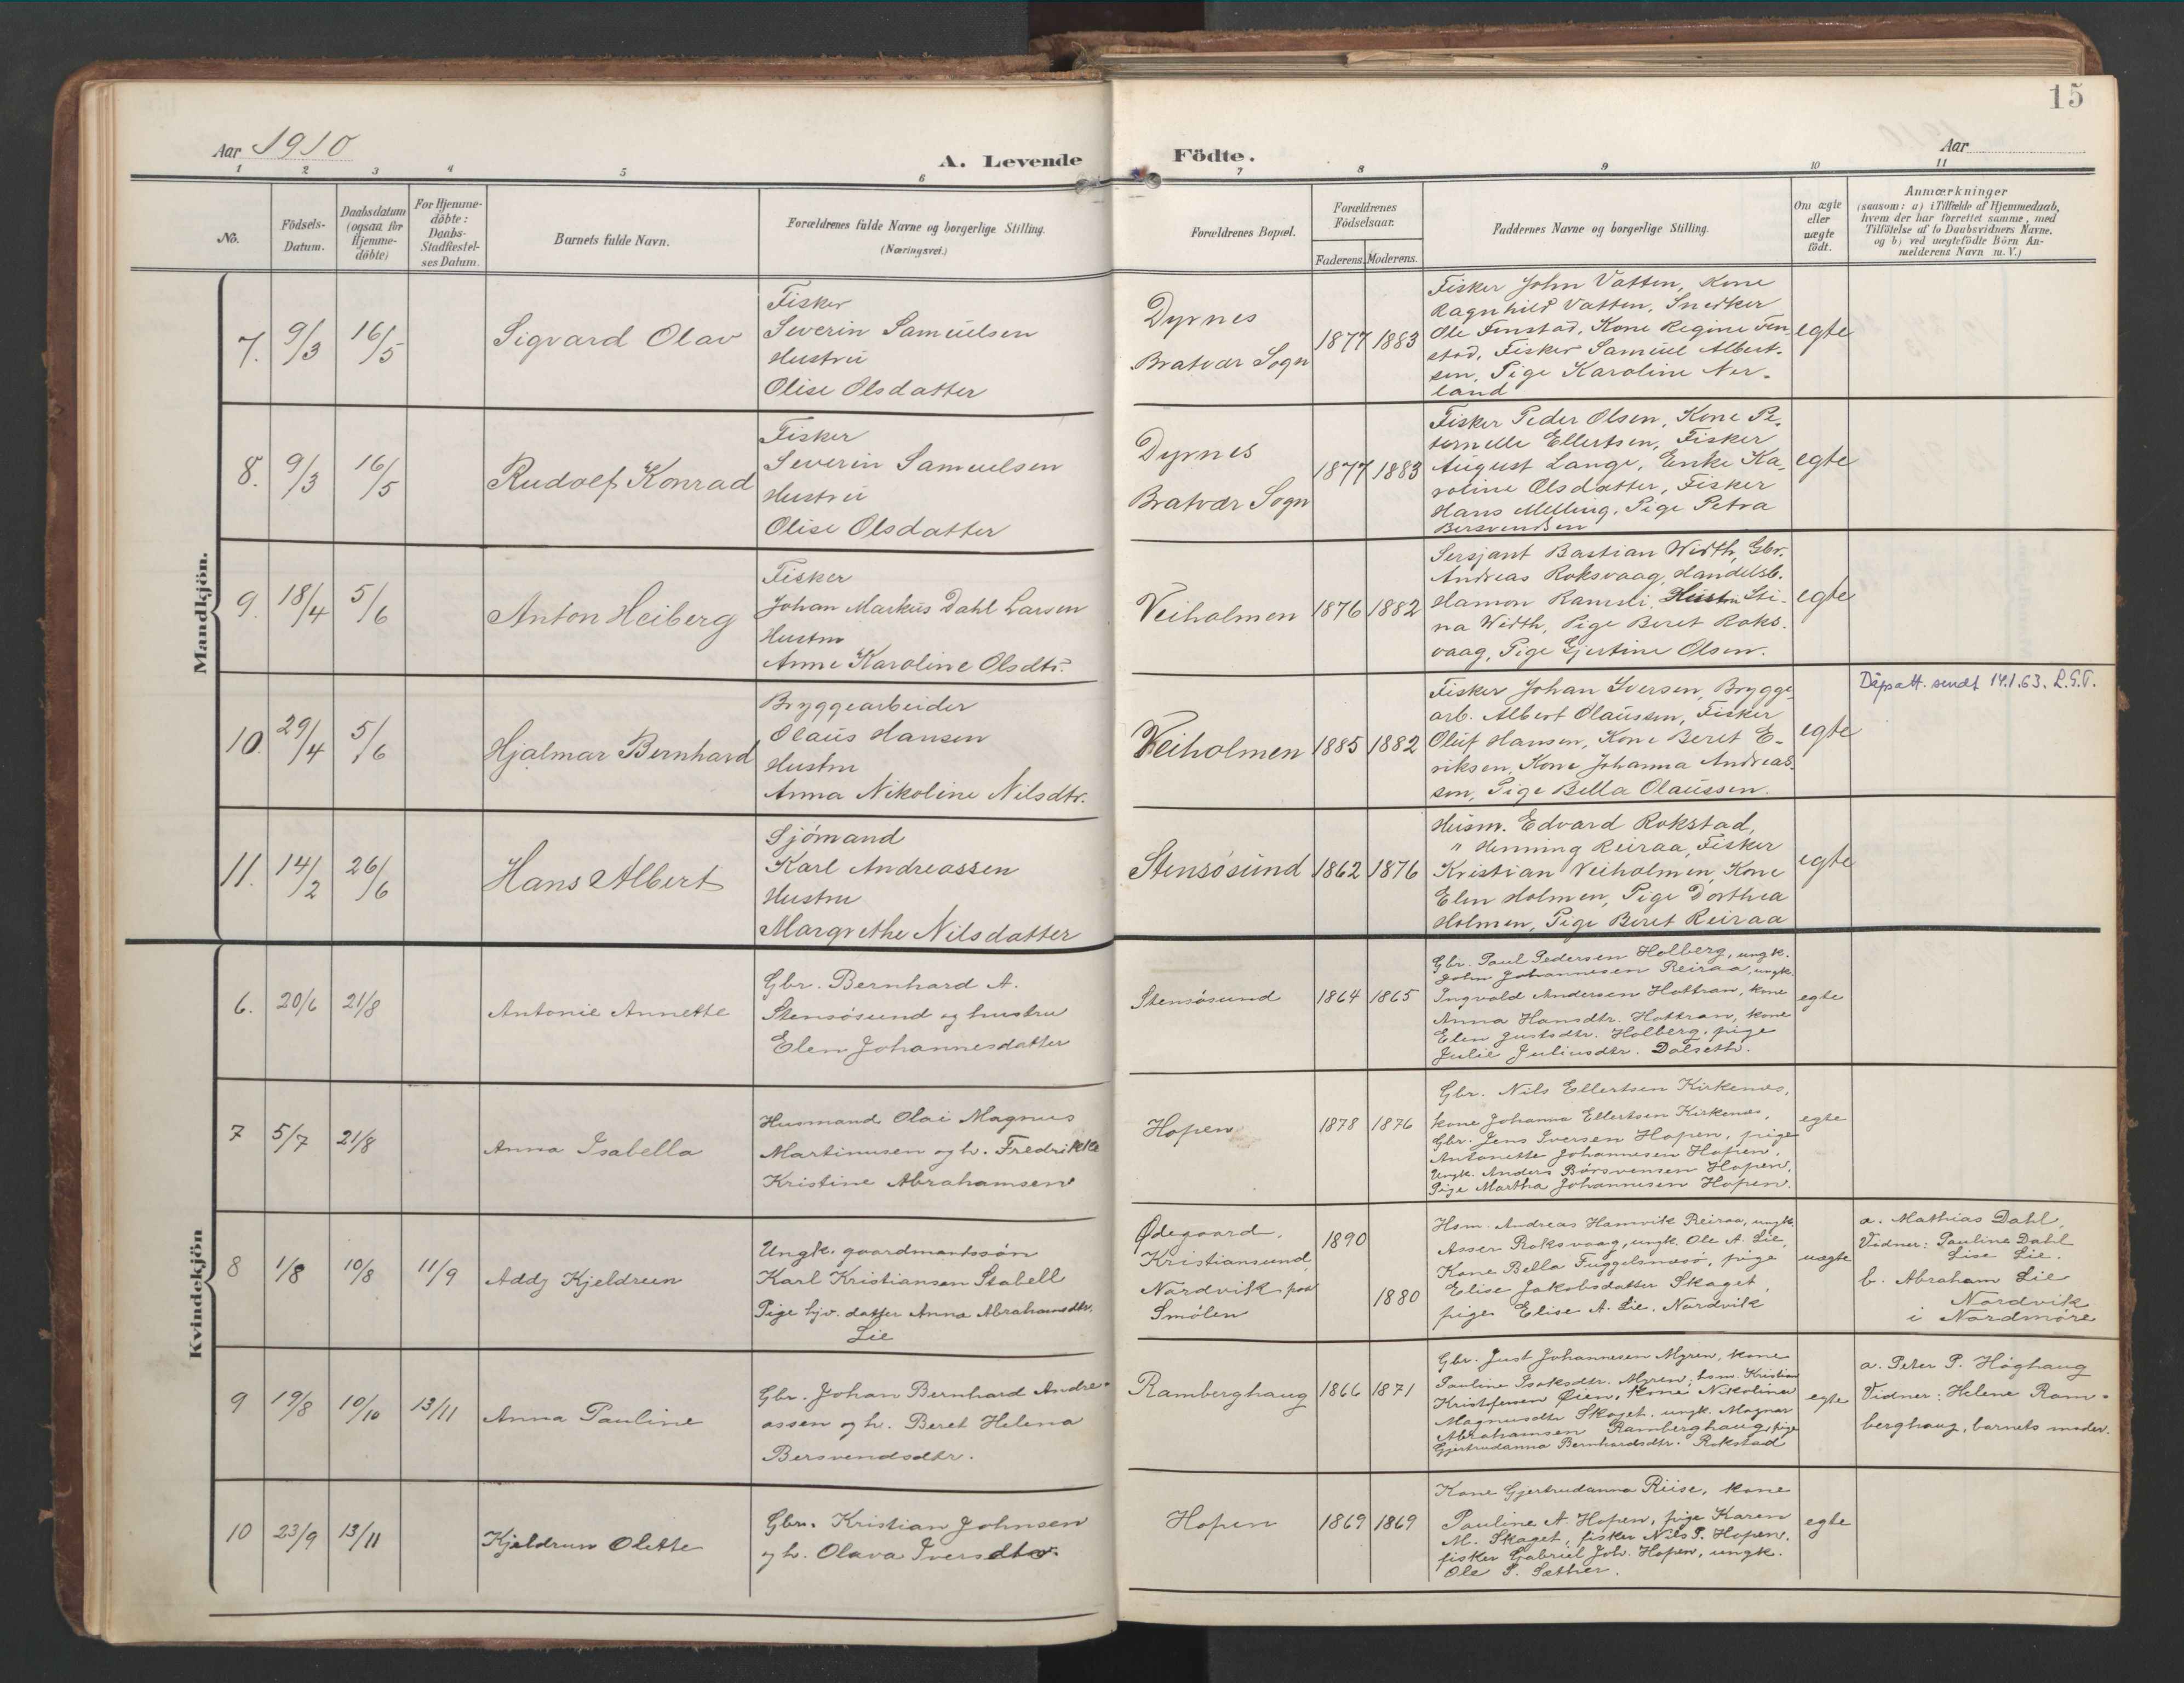 15
Aar 1910
A. Levende Födte.
Aar
1 2 3 4 5 6 7 8 9 10 11
No.
Födsels-
Datum.
Daabsdatum
(ogsaa for
Hjemme-
döbte)
For Hjemme-
döbte:
Daabs-
Stadfæstel-
ses Datum.
Barnets fulde Navn.
Forældrenes fulde Navne og borgerlige Stilling.
(Næringsvei.)
Forældrenes Bopæl.
Forældrenes
Födselsaar.
Faderens.
Moderens.
Faddernes Navne og borgerlige Stilling.
Om ægte
eller
uægte
födt.
Anmærkninger
(saasom: a) i Tilfælde af Hjemmedaab,
hvem der har forrettet samme, med
Tilföielse af to Daabsvidners Navne.
og b) ved uægtefödte Börn An-
melderens Navn m. V.)
Mandkjön.
7. 9/3 16/5
Sigvard Olav
Fisker
Severin Samuelsen
Hustru
Olise Olsdatter
Dyrnes
Bratvær Sogn
1877 1883
Fisker John Vatten, Kone
Ragnhild Vatten, Snedker
Ole Finstad, Kone Regine Fin
stad, Fisker Samuel Albert-
sen, Pige Karoline Ner-
land
egte
8. 9/3 16/5
Rudolf Konrad
Fisker
Severin Samuelsen
Hustru
Olise Olsdatter
Dyrnes
Bratvær Sogn
1877 1883
Fisker Peder Olsen, Kone Pe-
ternelle Ellertsen, Fisker
August Lange, Enke Ka-
roline Olsdatter, Fisker
Hans Melling, Pige Petra
Bersvendsen
egte
9. 18/4 5/6
Anton Heiberg
Fisker
Johan Markus Dahl Larsen
Hustru
Anne Karoline Olsdtr.
Veiholmen
1876 1882
Sersjant Bastian Width, Gbr.
Andreas Roksvaag, Handelsb.
Hamon Ramsli, Hustru Sti-
na Width, Pige Beret Roks-
vaag, Pige Gjertine Olsen.
egte
10. 29/4 5/6
Hjalmar Bernhard
Bryggearbeider
Olaus Hansen
Hustru
Anna Nikoline Nilsdtr.
Veiholmen
1885 1882
Fisker Johan Iversen, Brygge
arb. Albert Olaussen, Fisker
Oluf Hansen, Kone Beret E-
riksen, Kone Johanna Andreas-
sen, Pige Bella Olaussen.
egte
Dåpsatt. sendt 14.1.63. L.G.T.
11. 14/2 26/6
Hans Albert
Sjömand
Karl Andreassen
Hustru
Margrethe Nilsdatter
Stensösund
1862 1876
Husm. Edvard Rokstad,
" Henning Reiraa, Fisker
Kristian Veiholmen, Kone
Elen Holmen, Pige Dorthea
Holmen, Pige Beret Reiraa
egte
Kvindekjön
6. 20/6 21/8
Antonie Annette
Gbr. Bernhard A.
Stensösund og hustru
Elen Johannesdatter
Stensösund
1864 1865
Gbr. Paul Pedersen Holberg, ungk.
John Johannesen Reiraa, ungk.
Ingvald Andersen Hattran, kone
Anna Hansdtr. Hattran, kone
Elen Justsdtr. Holberg, pige
Julie Juliusdtr. Dalseth.
egte
7 5/7 21/8
Anna Isabella
Husmand Olai Magnus
Martinusen og h. Fredrikke
Kristine Abrahamsen
Hopen
1878 1876
Gbr. Nils Ellertsen Kirkenæs,
kone Johanna Ellertsen Kirkenæs,
Gbr. Jens Iversen Hopen, pige
Antonette Johannesen Hopen,
Ungk. Anders Börsvensen Hopen,
Pige Martha Johannesen Hopen.
egte
8 1/8 10/8 11/9
Addy Kjeldrun
Ungk. gaardmandssön
Karl Kristiansen Stabell
Pige hjv. datter Anna Abrahamsdtr.
Lie
Ødegaard,
Kristiansund,
Nordvik paa
Smölen
1890
1880
Hsm. Andreas Hamvik Reiraa, ungk.
Asser Roksvaag, ungk. Ole A. Lie,
Kone Bella Fuggelsnæsö, pige
Elise Jakobsdatter Skaget,
pige Elise A. Lie, Nordvik
uægte
a. Mathias Dahl,
Vidner: Pauline Dahl
Lise Lie.
b. Abraham Lie
Nordvik
i Nordmöre
9 19/8 10/10 13/11
Anna Pauline
Gbr. Johan Bernhard Andre-
assen og h. Beret Helena
Bersvendsdtr.
Ramberghaug
1866 1871
Gbr. Just Johannesen Myren, kone
Pauline Isaksdtr. Myren, hsm. Kristian
Kristfersen Øien, kone Nikoline
Magnusdtr Skaget, ungk. Magnar
Abrahamsen Ramberghaug, pige
Gjertrudanna Bernhardsdtr. Rokstad
egte
a. Peter P. Höghaug
Vidner: Helene Ram-
berghaug, barnets moder.
10 23/9 13/11
Kjeldrun Olette
Gbr. Kristian Johnsen
og h. Olava Iversdtr.
Hopen
1869 1869
Kone Gjertrudanna Riise, kone
Pauline A. Hopen, pige Karen
M. Skaget, fisker Nils P. Hopen,
fisker Gabriel Joh. Hopen, ungk.
Ole P. Sæther.
egte